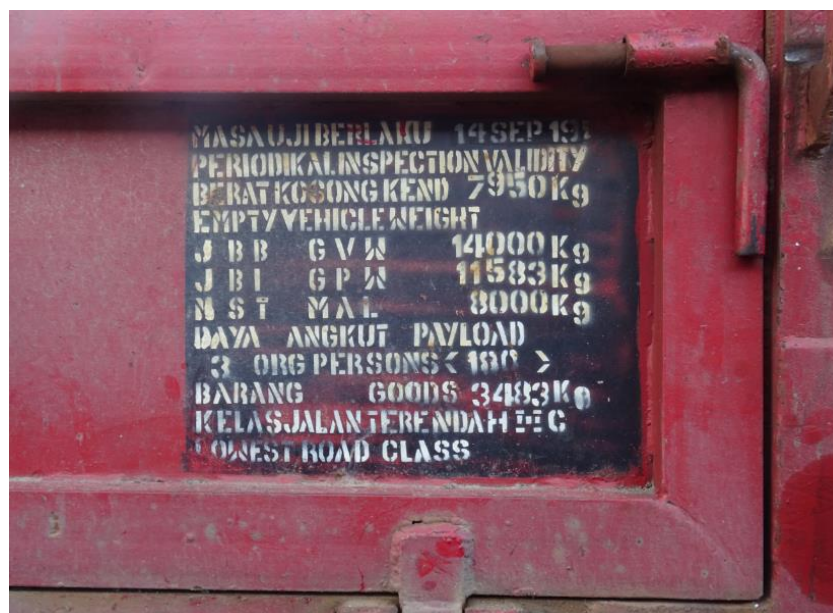 MASA UJI BERLAKU 14 SEP
PERIODIKAL INSPECTION VALIDITY
BERAT KOSONG KEND 7950Kg
EMPTY VEHICLE WEIGHT
J B B G V W 14000Kg
J B I G P W 11583Kg
M S T M A L 8000Kg
DAYA ANGKUT PAYLOAD
3 ORG PERSONS < 180 >
BARANG GOODS 3483Kg
KELAS JALAN TERENDAH III C
LOWEST ROAD CLASS